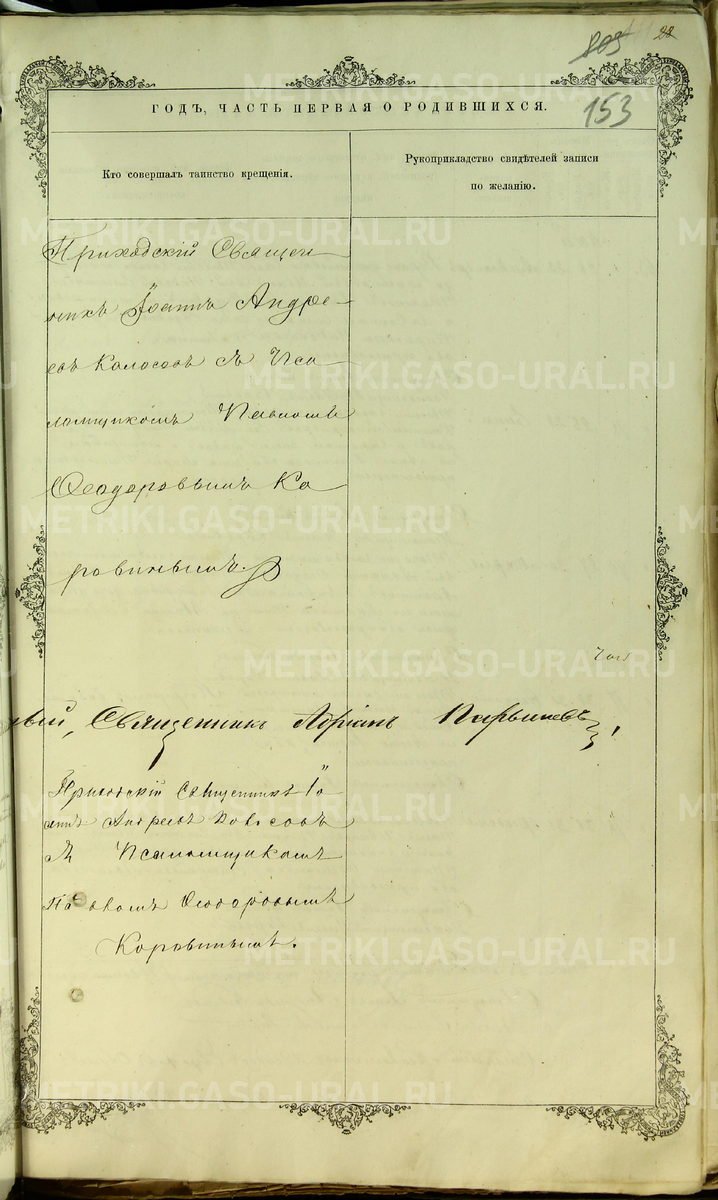 28
153
ГОДЪ, ЧАСТЬ ПЕРВАЯ О РОДИВШИХСЯ.
Кто совершалъ таинство крещенія.
Рукоприкладство свидѣтелей записи
по желанію.
Приходскій Священ
никъ Іоаннъ Андре
евъ Колосовъ съ Пса
ломщикомъ Павломъ
Ѳеодоровымъ Ко
ровинымъ.
Священникъ Адріанъ
Приходскій Священникъ Іо
аннъ Андреевъ Колосовъ
съ Псаломщикомъ
Павломъ Ѳеодоровымъ
Коровинымъ.
METRIKI.GASO-URAL.RU